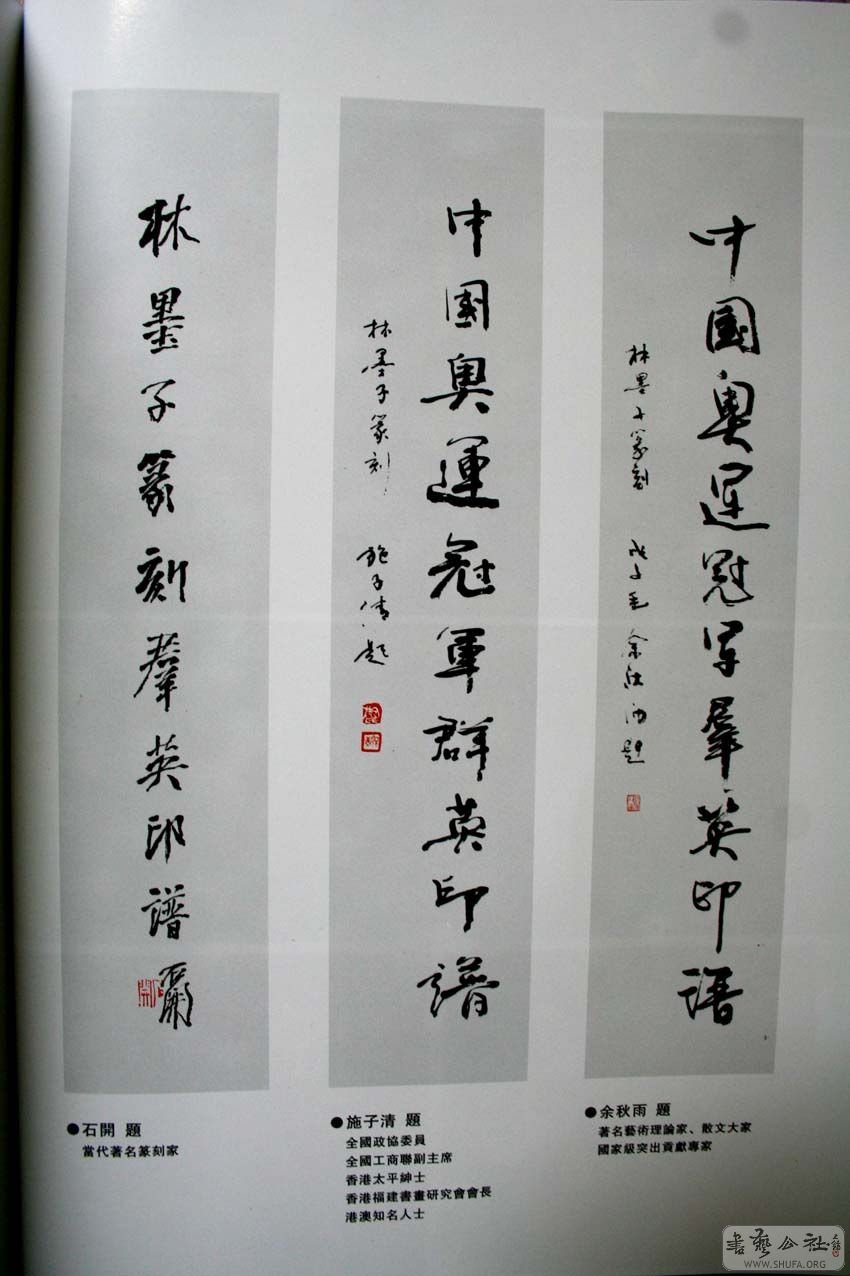 中國奧運冠軍羣英印譜
林墨子篆刻 戊子春 余秋雨題
中國奧運冠軍群英印譜
林墨子篆刻 施子清題
林墨子篆刻羣英印譜 石開
石開
●石開 題
當代著名篆刻家
●施子清 題
全國政協委員
全國工商聯副主席
香港太平紳士
香港福建書畫研究會會長
港澳知名人士
●余秋雨 題
著名藝術理論家、散文大家
國家級突出貢獻專家
書藝公社
WWW.SHUFA.ORG